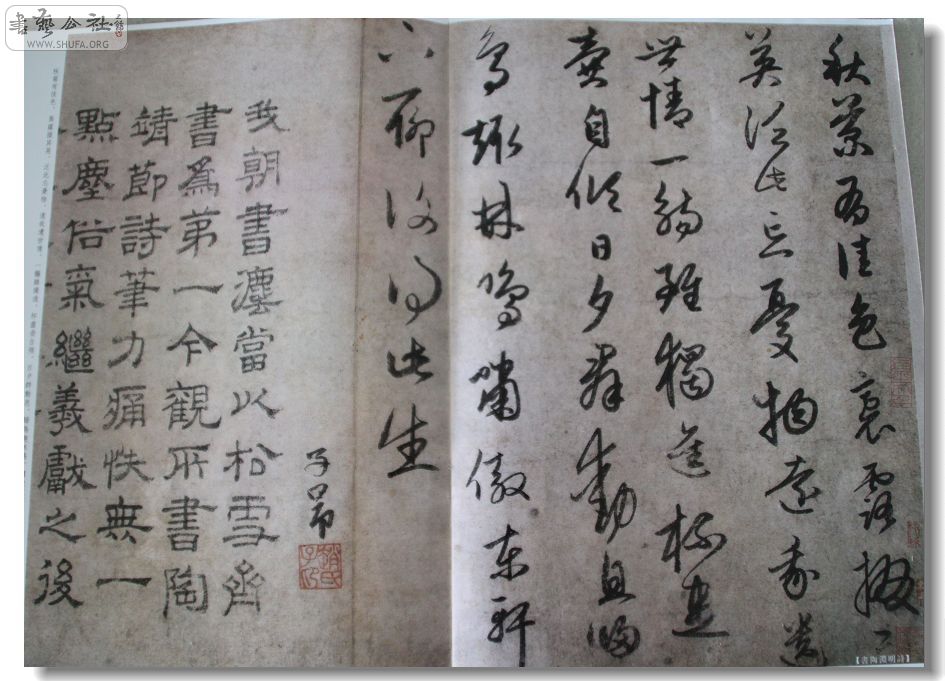 書藝公社
WWW.SHUFA.ORG
秋菊有佳色裛露掇其
英汎此忘憂物遠我遺
世情一觴雖獨進杯盡
壺自傾日夕群動息歸
鳥趨林鳴嘯傲東軒
下聊復得此生
子昂
我朝書廛當以松雪齊
書爲第一今觀所書陶
靖節詩筆力痛快無一
點塵俗氣繼羲獻之後
【書陶淵明詩】